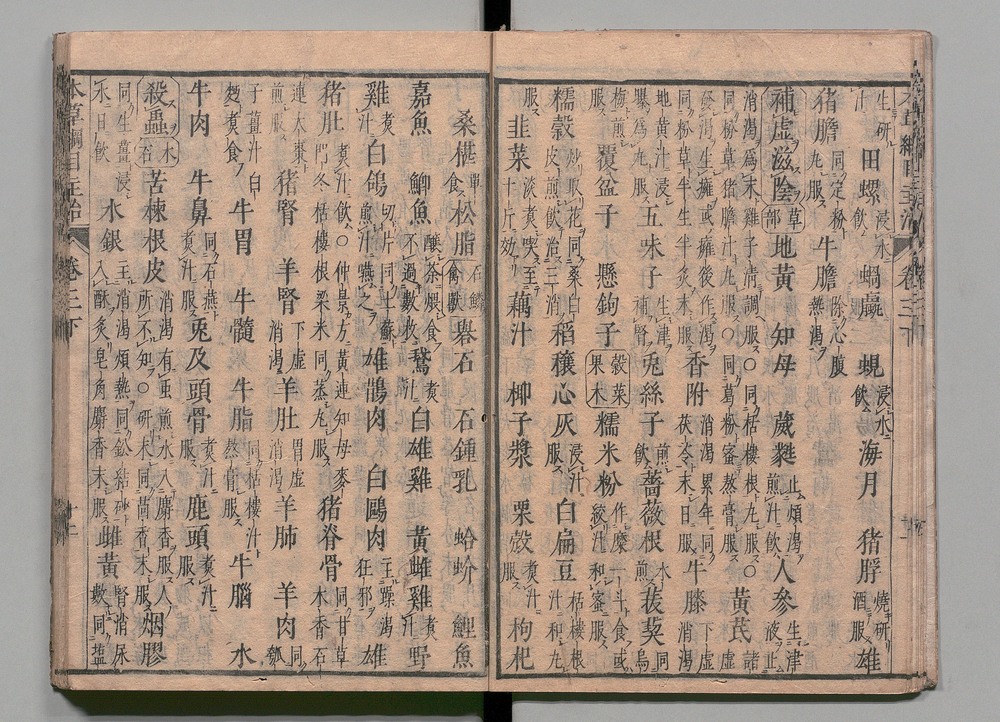 生研汁田螺浸水飲蝸蠃蜆浸水飲海月猪脬燒研酒服雄
猪膽同定粉丸服牛膽除心腹熱渴
補虛滋陰草部地黃知母葳蕤止煩渴煎汁飲人參生津液止
消渴為末雞子清調服○同栝樓根丸服○
同粉草猪膽汁丸服○同葛粉蜜熬膏服黃芪諸虛
發渴生癰或癰後作渴
同粉草半生半炙末服香附消渴累年同茯苓末日服牛膝下虛消渴
地黃汁浸曝為丸五味子生津補腎兔絲子煎飲薔薇根水煎菝葜同烏
梅煎服覆盆子懸鉤子穀菜果木糯米粉作糜一斗食或絞汁和蜜服
糯穀炒取花同桑白皮煎飲治三消稻穰心灰浸汁服白扁豆栝樓根汁和丸
服韭菜淡煮喫至十斤效藕汁椰子漿栗殼煮汁服枸杞
桑椹單食松脂石鱗禽獸礜石石鍾乳蛤蚧鯉魚
嘉魚鯽魚釀茶煨食不過數枚鵞煮汁白雄雞黃雌雞煮汁野
雞煮汁白鴿切片同土蘇煎汁嚥之雄鵲肉白鷗肉主躁渴狂邪雄
猪肚煮汁飲○仲景方黃連知母麥門冬栝樓根粟米同蒸丸服猪脊骨同甘草木香石
連大棗煎服猪腎羊腎下虛消渴羊肚胃虛消渴羊肺羊肉同瓠
子薑汁白麪煮食牛胃牛髓牛脂同栝樓汁熬膏服牛腦水
牛肉牛鼻同石燕煮汁服兎及頭骨煮汁服鹿頭煮汁服
殺蟲木石苦楝根皮消渴有蟲煎水入麝香服人所不知○研末同茴香末服烟膠
同生薑浸水日飲水銀主消渴煩熱同鉛結砂入酥炙皂角麝香末服雌黃腎消尿數同鹽
本草綱目主治卷三下十一